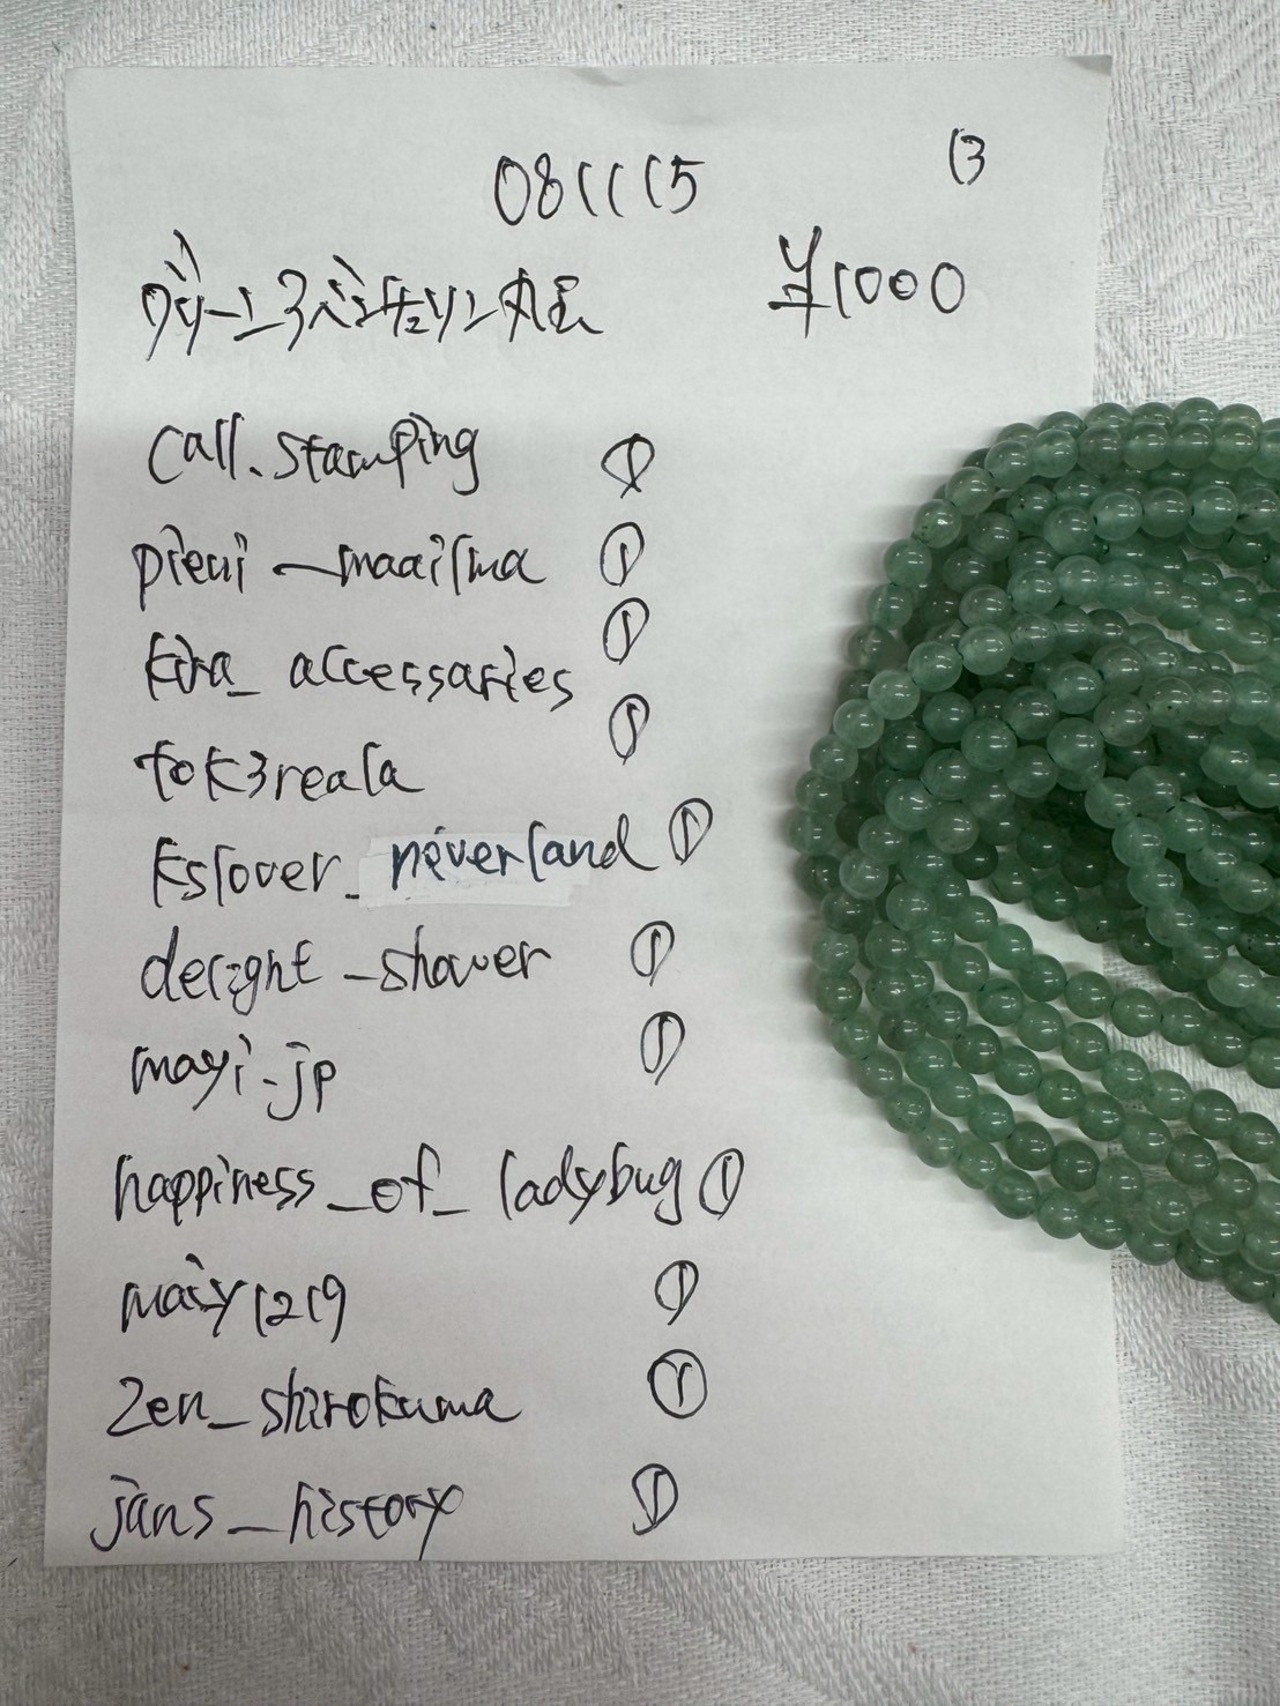 0811115 13
グリーンアベンチュリン丸玉 ¥1000
call.stamping ①
pieni_maailma ①
kira_accessaries ①
tok3reala ①
kslover_neverland ①
deright_shower ①
mayi.jp ①
happiness_of_ladybug ①
maiy1219 ①
zen_shirokuma ①
jans_history ①